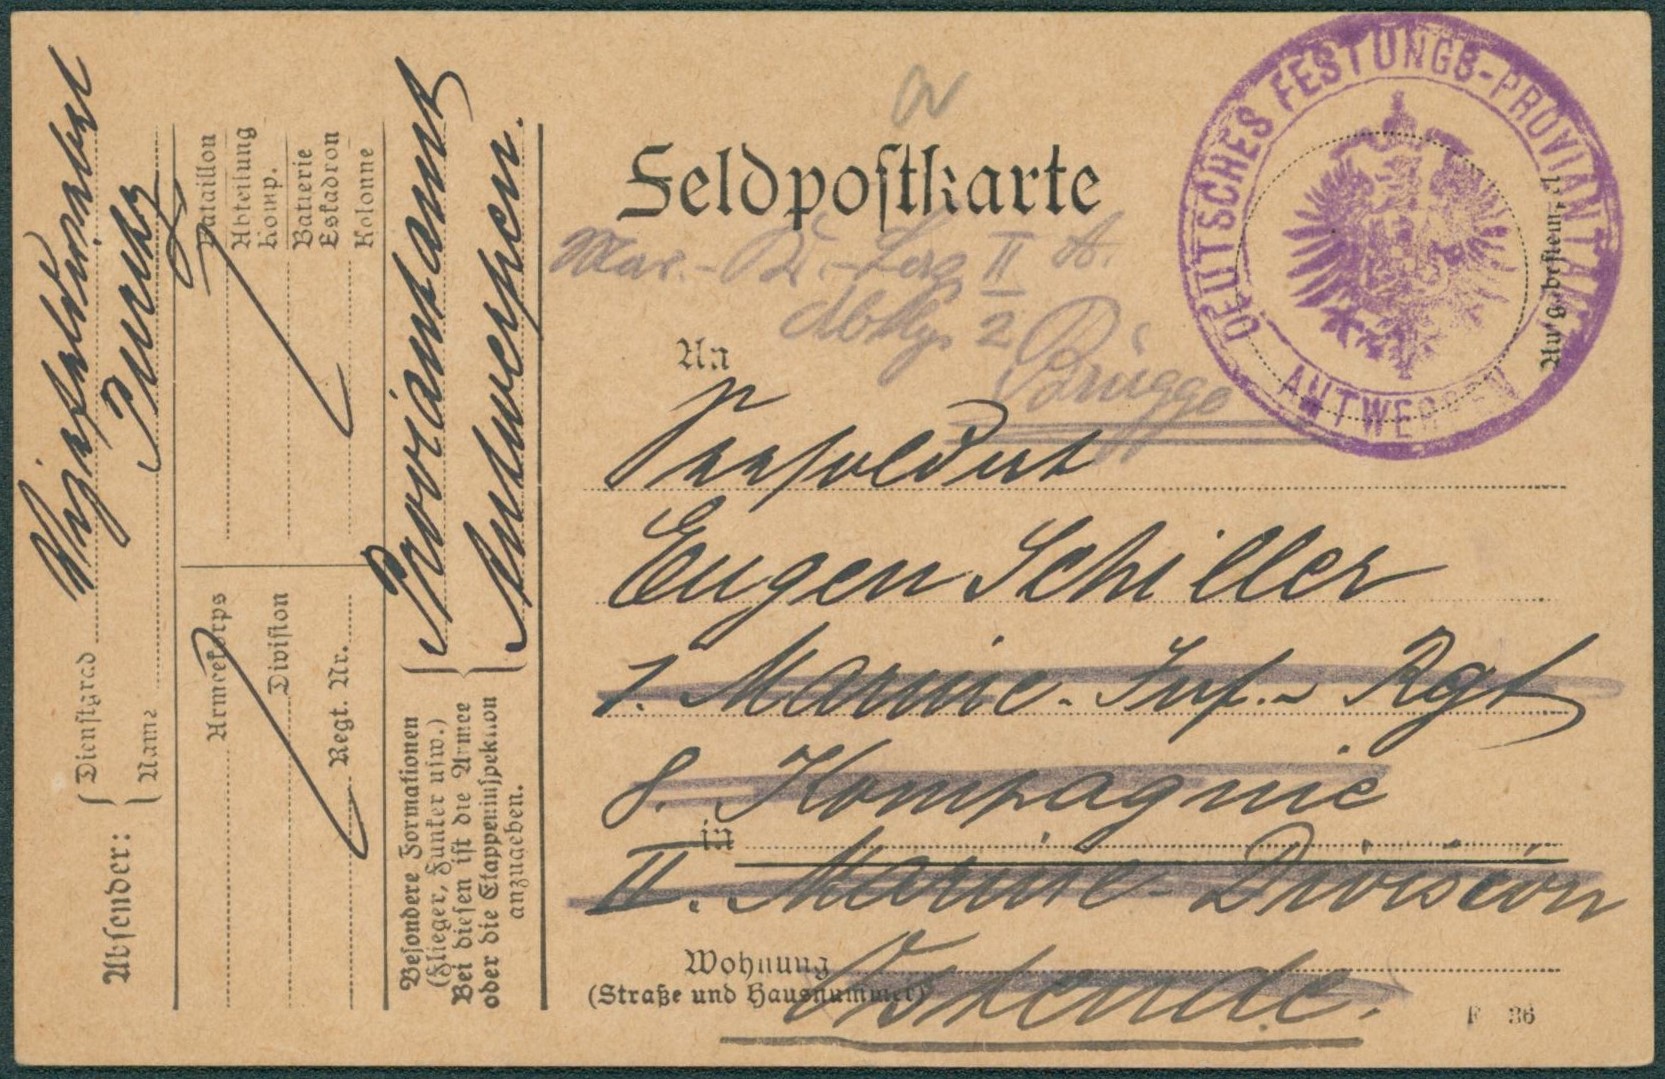 Absender:
Dienstgrad Vizefeldwebel
Name
Bataillon
Abteilung
Komp.
Batterie
Eskadron
Kolonne
Armeekorps
Division
Regt. Nr.
Besondere Formationen
(Flieger, Funker usw.)
Bei diesen ist die Armee
oder die Etappeninspektion
anzugeben.
Proviantamt
Antwerpen.
Feldpostkarte
Mar.-Kr.-Laz II A.
Abtlg. 2
Brügge
DEUTSCHES FESTUNGS-PROVIANTAMT
ANTWERPEN
An
Seesoldat
Eugen Schiller
1. Marine-Inf.-Rgt
8. Kompagnie
in
II. Marine-Division
Wohnung
(Straße und Hausnummer)
Ostende.
F 36